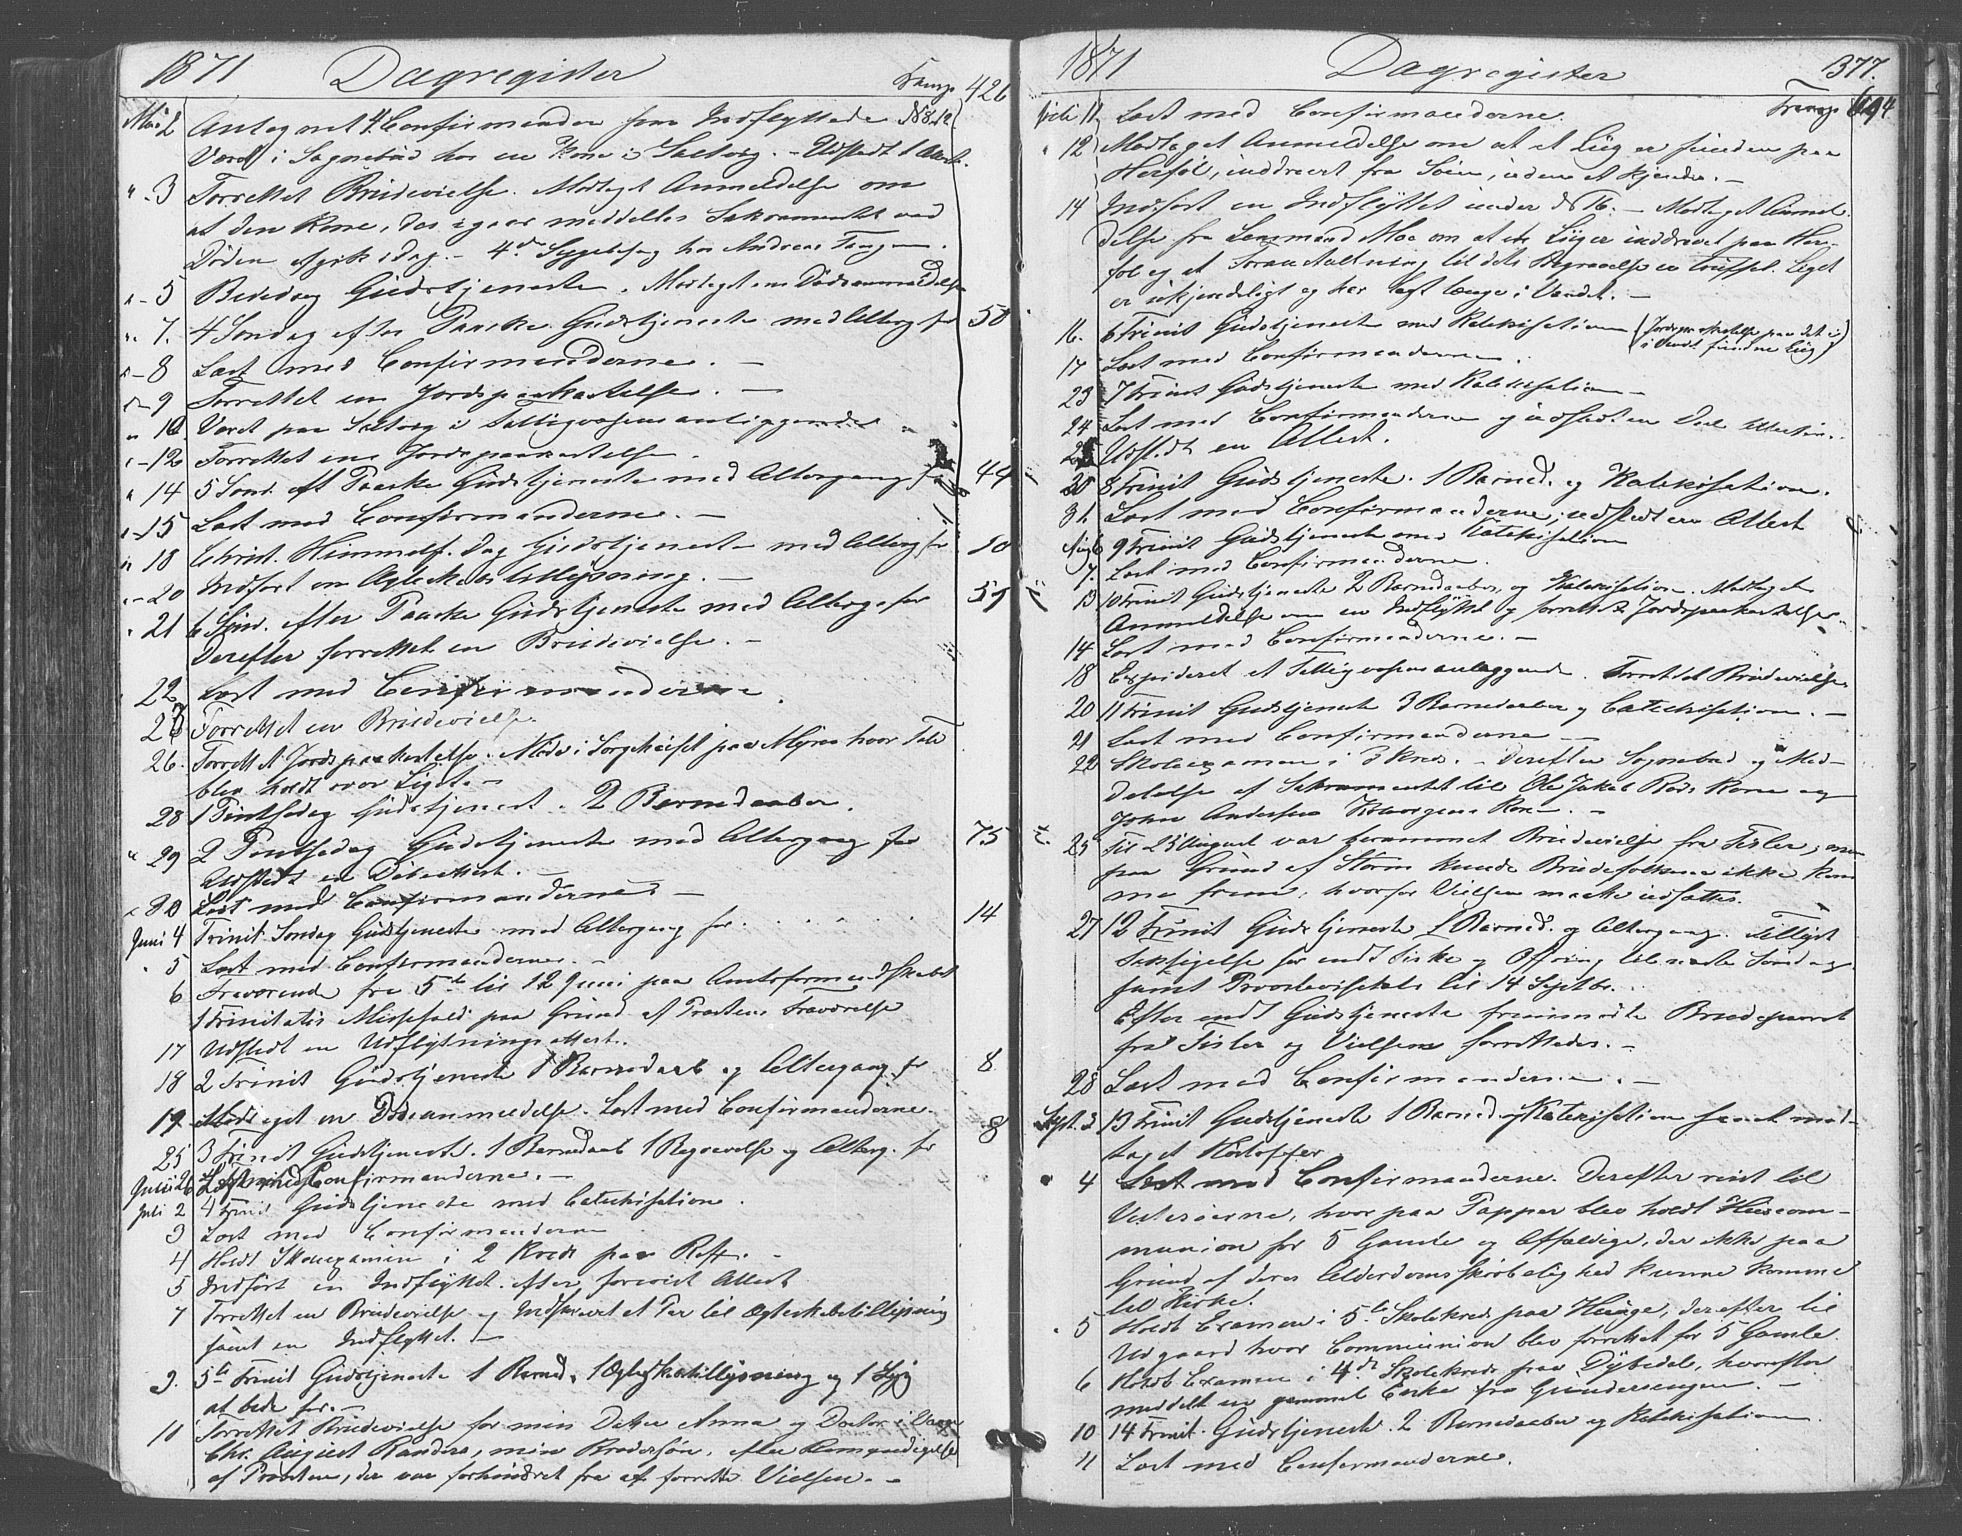 1871 Dagregister
Transp. 426
Mai 2 Antegnet 4 Confirmander som Indflyttede
Været i Sognebud hos en Kone i Saltvig. - Udstedt 1 Attest.
" - 3 Forrettet Brudevielse. Modtaget Anmeldelse om
at den Kone, der igaar meddeltes Sakramentet ved
Døden afgik i Dag. - 4de Sygebesøg hos Andreas Tangen.
" - 5 Bededag Gudstjeneste. Modtaget en Dødsanmeldelse
" - 7. 4 Søndag efter Paaske Gudstjeneste med Alterg. for 50
" - 8 Læst med Confirmanderne. -
" - 9 Forrettet en Jordspaakastelse. -
" 10 Været paa Saltvig i Fattigvæsensanliggender
" - 12 Forrettet en Jordspaakastelse.
" 14 5 Sønd. eft Paaske Gudstjeneste med Altergang for 44
" - 15 Læst med Confirmanderne. -
" 18 Christi Himmelf. Dag Gudstjeneste med Alterg. for 10
" - 20 Indført en Ægteskabstillysning. -
" 21 6 Sønd. efter Paaske Gudstjeneste med Alterg. for 55
Derefter forrettet en Brudevielse. -
22 Læst med Confirmanderne.
23 Forrettet en Brudevielse.
26. Forrettet Jordspaakastelse. Møde i Sørgehuset paa hvor Tale
blev holdt over Liget. -
28 1 Pintsedag Gudstjenest. 2 Barnedaaber.
" 29 2 Pintsedag Gudstjeneste med Altergang for 75
Udstedt en Døbeattest. -
" 30 Læst med Confirmanderne. -
Juni 4 Trinit. Søndag Gudstjeneste med Altergang for. . . . . 14
" 5 Læst med Confirmanderne. -
6 Fraværende fra 5te til 12 Juni paa Amtsformandskabet
1 Trinitatis Messefald paa Grund af Præstens Fraværelse
17 Udstedt en Udflytningsattest.
18 2 Trinit Gudstjeneste 1 Barnedaab og Altergang for 8
19 Modtaget en Dødsanmeldelse. Læst med Confirmanderne.
25 3 Trinit Gudstjeneste. 1 Barnedaab 1 Begravelse og Alterg. for 8
Juni 26 Læst med Confirmanderne. -
Juli 2 4 Trinit Gudstjeneste med Catechisation.
3 Læst med Confirmanderne
4 Holdt Skoleexamen i 2 Kreds paa Røff. -
5 Indført en Indflyttet efter foreviist Attest
7 Forrettet en Brudevielse og Indskrevet et Par til Ægteskabstillysning
samt en Indflyttet. -
9. 5te Trinit Gudstjeneste 1 Barned. 1 Ægteskabstillysning og 1 Syg
at bede for. -
10 Forrettet Brudevielse for min Datter Anna og Doctor i
Chr. August Randers, min Brodersøn, efter
af Præsten, der var forhindret fra at forrette Vielsen. -
1871 Dagregister 377.
Transp. 694
Juli 11 Læst med Confirmanderne.
" 12 Modtaget Anmeldelse om at et Liig er funden paa
Herføl, inddrevet fra Søen, uden at kjendes. -
14 Indført en Indflyttet under No 16. - Modtaget Anmel-
delse fra Lensmand Moe om at et Liig er inddrevet paa Her-
føl og at Foranstaltning til dets Begravelse er truffet. Liget
er ukjendeligt og har lagt længe i Vandet. -
16. 6 Trinit Gudstjeneste med Katekisation (Jordspaakastelse paa det
i Vandet fundne Liig)
17 Læst med Confirmanderne.
23 7 Trinit Gudstjeneste med Katekisation -
24 Læst med Confirmanderne og udstedt en Deel Attester.
25 Udstedt en Attest.
30 8 Trinit Gudstjeneste. 1 Barned. og Katekisation.
31. Læst med Confirmanderne, udstedt en Attest
Aug 6 9 Trinit Gudstjeneste med Katekisation
7. Læst med Confirmanderne.
13 10 Trinit Gudstjeneste 2 Barnedaaber, og Katekisation. Modtaget
Anmeldelse om en Indflyttet og forrettet 2 Jordspaakastelser.
14 Læst med Confirmanderne. -
18 Expederet et Fattigvæsensanliggende. Forrettet Brudevielse
20 11 Trinit Gudstjeneste 3 Barnedaaber og Catechisation. -
21 Læst med Confirmanderne -
22 Skoleexamen i 3 Kreds. - Derefter Sognebud og Med-
delelse af Sakramentet til Ole Jakob Røds Kone og
John Andersen Kone. -
25 Til 25 August var berammet Brudevielse fra Tisler, men
paa Grund af Storm kunde Brudefolkene ikke kom
me frem, hvorfor Vielsen maatte udsættes.
27 12 Trinit Gudstjeneste 1 Barned. og Altergang. Tillyst
Taksigelse for endt Fiske og Offring til næste Søndag
samt Provstevisitats til 14 Septbr.
Efter endt Gudstjeneste fremmødte Brudeparret
fra Tisler og Vielsen forrettedes. -
28 Læst med Confirmanderne. -
Sept. 3 13 Trinit Gudstjeneste 1 Barned. og Katekisation samt mod-
taget Høstoffer
" 4 Læst med Confirmanderne. Derefter reist til
Vesterøerne, hvor paa Papper blev holdt Huuscom-
munion for 5 Gamle og Affældige, der ikke paa
Grund af deres Alderdomsskrøbelighed kunne komme
til Kirke.
" 5 Holdt Examen i 5te Skolekreds paa Hauge, derefter til
Udgaard hvor Communion blev forrettet for 5 Gamle.
6 Holdt Examen i 4de Skolekreds paa Dybedal, hvorefter
meddelt en gammel Enke fra Grundersengen. -
10 14 Trinit. Gudstjeneste. 2 Barnedaaber og Katekisation.
11 Læst med Confirmanderne.